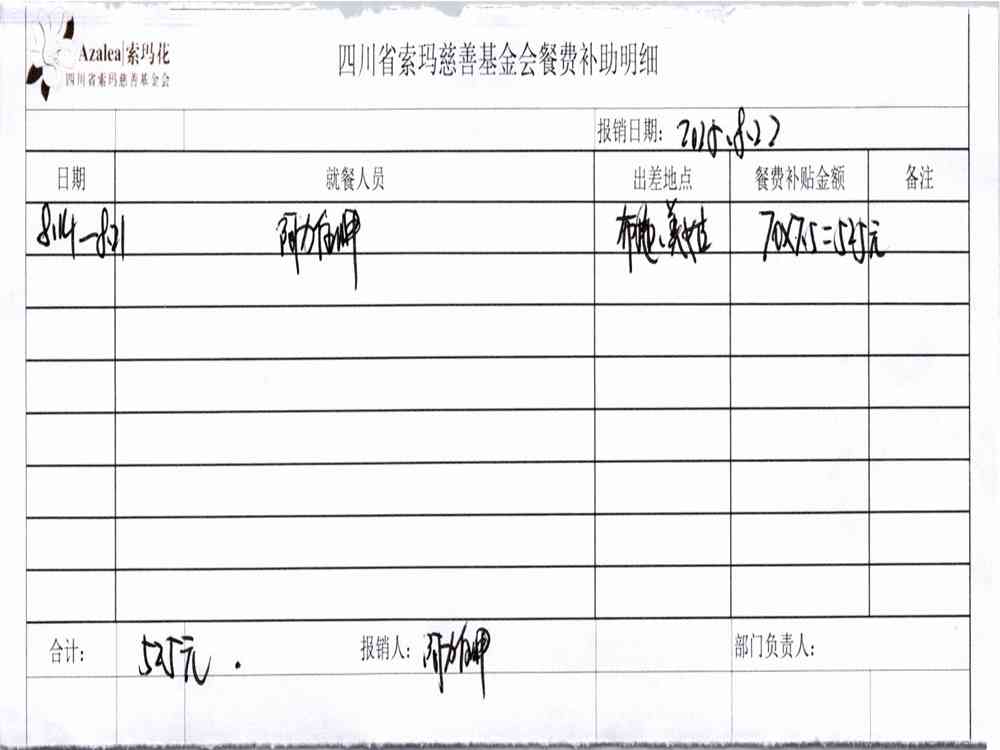 Azalea|索玛花
四川省索玛慈善基金会
四川省索玛慈善基金会餐费补助明细
报销日期: 2025.8.22
日期 就餐人员 出差地点 餐费补贴金额 备注
8.14—8.21 阿力 布拖、美姑 70X7.5=525元
合计: 525元. 报销人: 阿力 部门负责人: